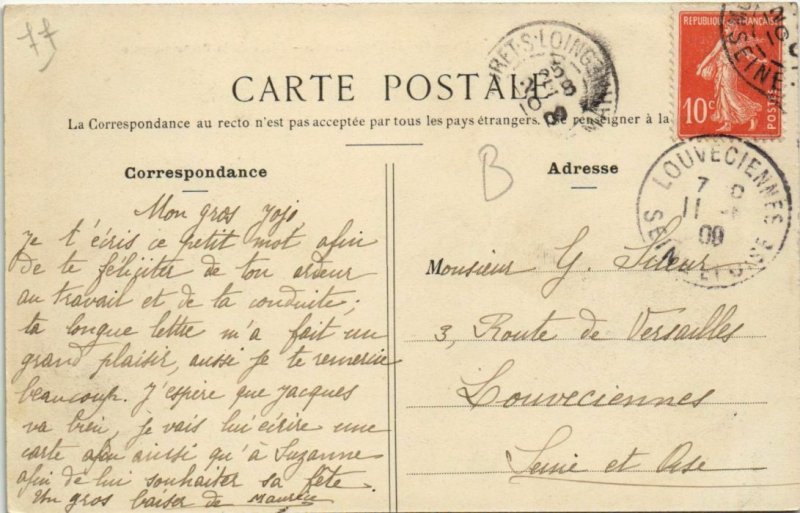 77
CARTE POSTALE
La Correspondance au recto n'est pas acceptée par tous les pays étrangers. renseigner à la
RÉPUBLIQUE FRANÇAISE
10c
POSTES
MORET-S-LOING
LOUVECIENNES
7
11
09
SEINE ET OISE
B
Correspondance
Mon gros Jojo
Je t'écris ce petit mot afin
de te féliciter de ton ardeur
au travail et de ta conduite;
ta longue lettre m'a fait un
grand plaisir, aussi je te remercie
beaucoup. J'espère que Jacques
va bien, je vais lui écrire une
carte afin aussi qu'à Suzanne
afin de lui souhaiter sa fête.
Un gros baiser de Maurice
Adresse
Monsieur G.
3, Route de Versailles
Louveciennes
Seine et Oise